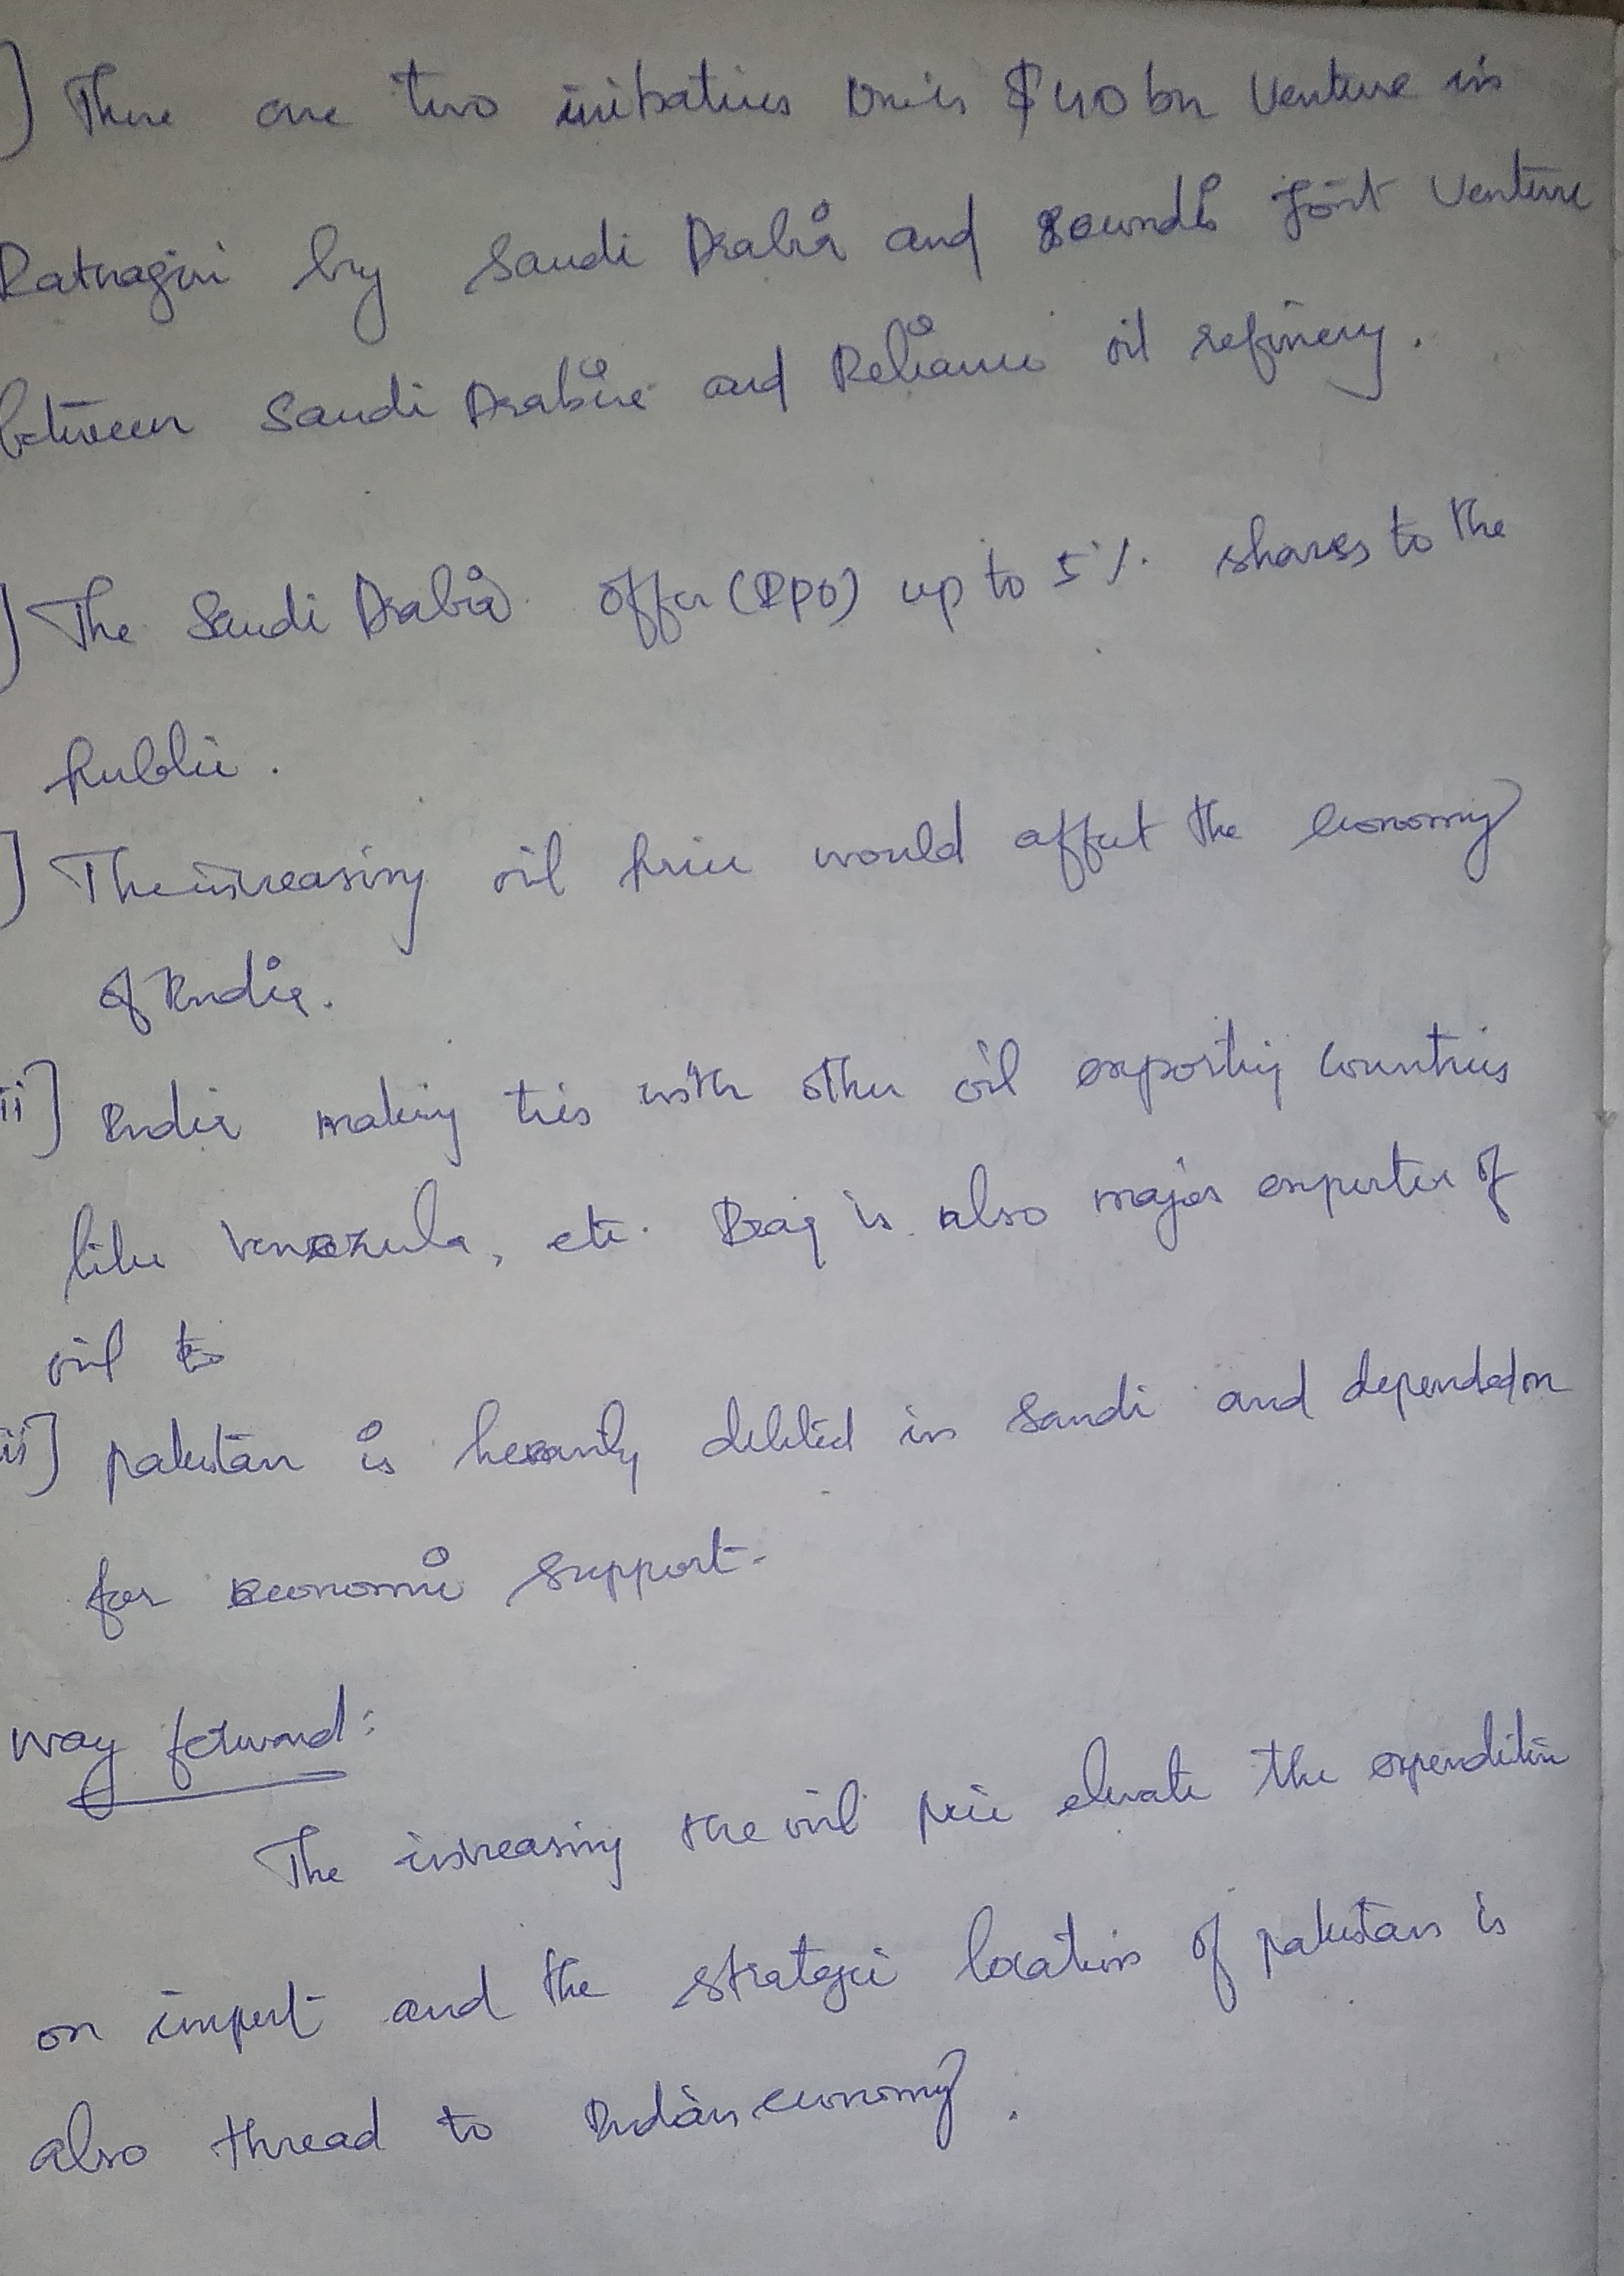 ] There are two initiatives One is $40 bn Venture in
Ratnagiri by Saudi Arabia and secondis Joint Venture
between Saudi Arabia and Reliance oil refinery.
] The Saudi Arabia offer (IPO) up to 5% shares to the
public.
] The increasing oil price would affect the economy
of India.
ii] India making ties with other oil exporting countries
like Venezula, etc. Iraq is also major exporter of
oil to
ii] pakistan is heavily debted in Saudi and depended on
for Economic support.
way forward:
The increasing the oil price elevate the expenditure
on import and the strategic location of pakistan is
also thread to Indian economy.